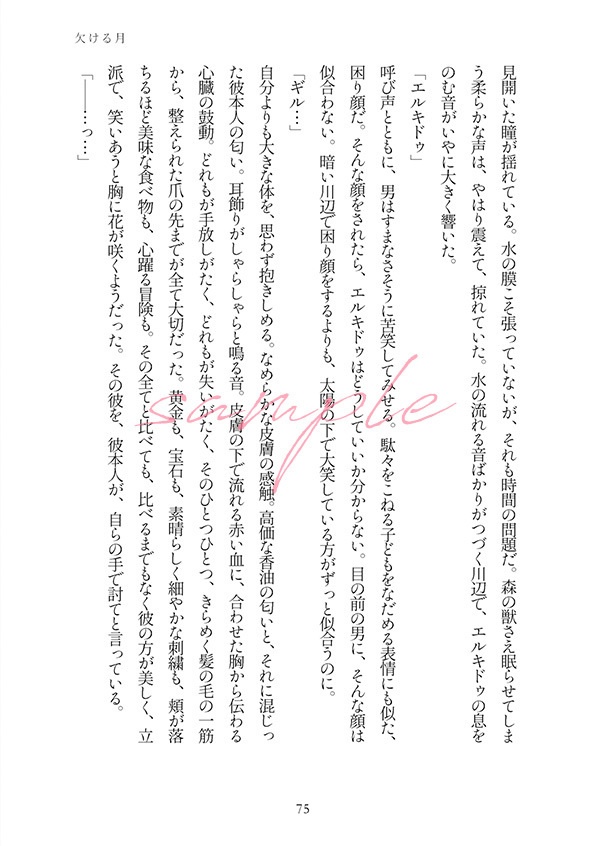 欠ける月
見開いた瞳が揺れている。水の膜こそ張っていないが、それも時間の問題だ。森の獣さえ眠らせてしま
う柔らかな声は、やはり震えて、掠れていた。水の流れる音ばかりがつづく川辺で、エルキドゥの息を
のむ音がいやに大きく響いた。
「エルキドゥ」
呼び声とともに、男はすまなさそうに苦笑してみせる。駄々をこねる子どもをなだめる表情にも似た、
困り顔だ。そんな顔をされたら、エルキドゥはどうしていいか分からない。目の前の男に、そんな顔は
似合わない。暗い川辺で困り顔をするよりも、太陽の下で大笑している方がずっと似合うのに。
「ギル…」
自分よりも大きな体を、思わず抱きしめる。なめらかな皮膚の感触。高価な香油の匂いと、それに混じっ
た彼本人の匂い。耳飾りがしゃらしゃらと鳴る音。皮膚の下で流れる赤い血に、合わせた胸から伝わる
心臓の鼓動。どれもが手放しがたく、どれもが失いがたく、そのひとつひとつ、きらめく髪の毛の一筋
から、整えられた爪の先までが全て大切だった。黄金も、宝石も、素晴らしく細やかな刺繍も、頬が落
ちるほど美味な食べ物も、心躍る冒険も。その全てと比べても、比べるまでもなく彼の方が美しく、立
派で、笑いあうと胸に花が咲くようだった。その彼を、彼本人が、自らの手で討てと言っている。
「―――…っ…」
sample
75